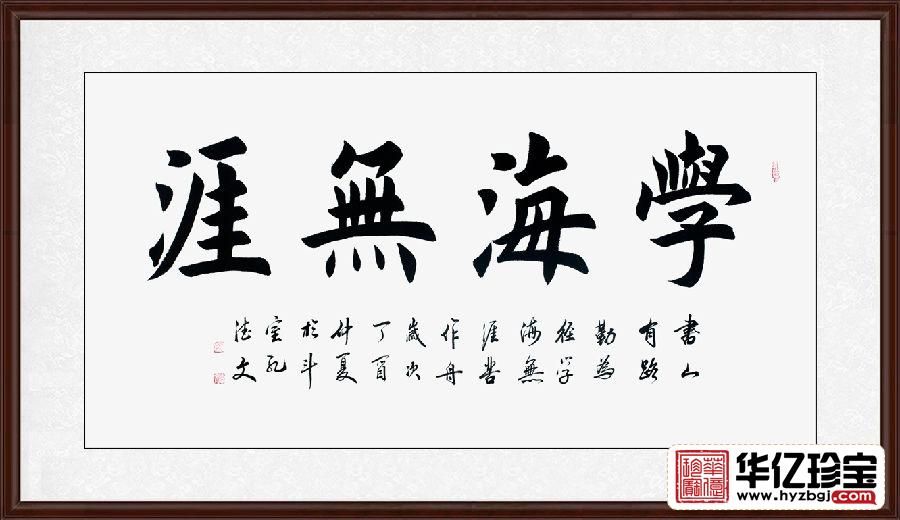 學海無涯
書山
有路
勤為
徑學
海無
涯苦
作舟
歲次
丁酉
仲夏
於斗
室孔
德文
華億珍寶
华亿珍宝
www.hyzbgj.com